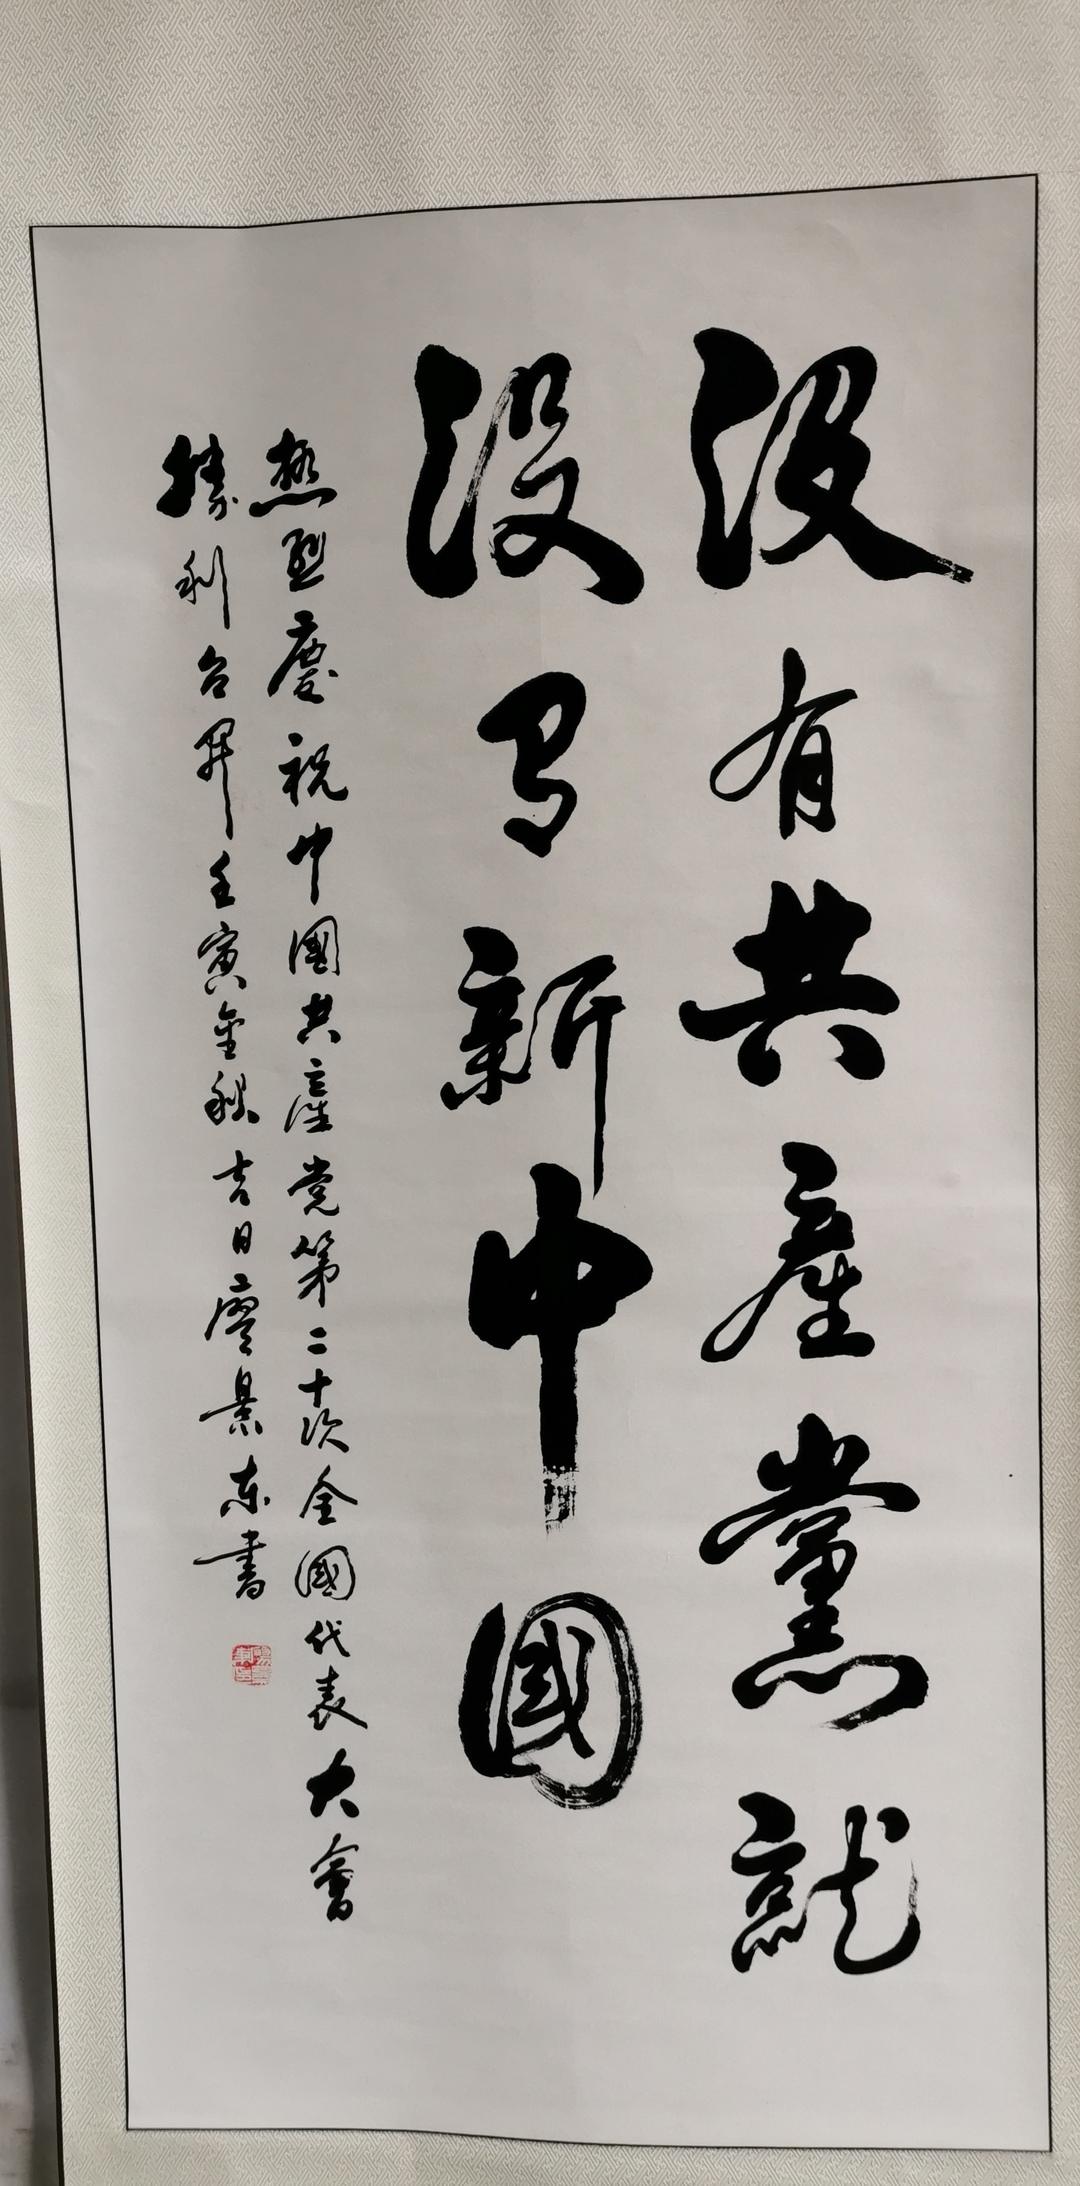 没有共産黨就
没有新中國
熱烈慶祝中國共產党第二十次全國代表大會
勝利召開壬寅金秋吉日廖景東書